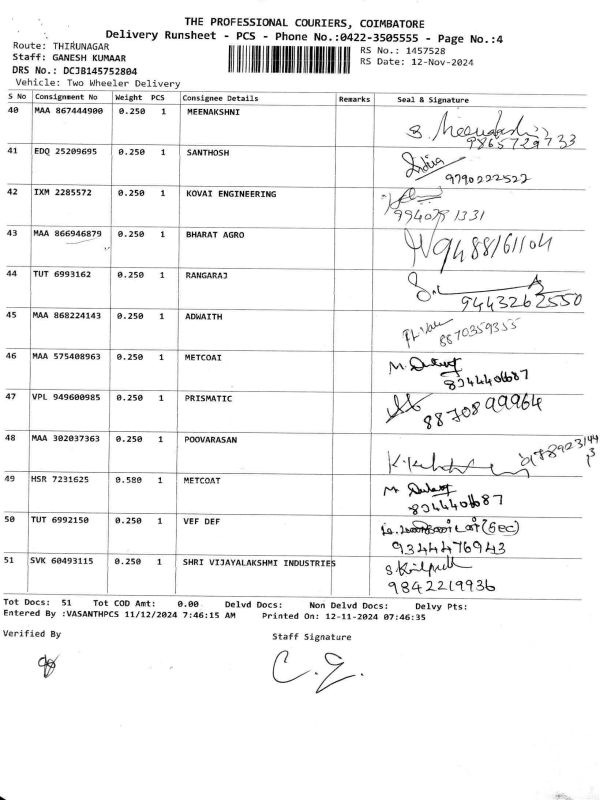 THE PROFESSIONAL COURIERS, COIMBATORE
Delivery Runsheet - PCS - Phone No.:0422-3505555 - Page No.:4
Route: THIRUNAGAR
RS No.: 1457528
Staff: GANESH KUMAAR
RS Date: 12-Nov-2024
DRS No.: DCJB145752804
Vehicle: Two Wheeler Delivery
S No Consignment No Weight PCS Consignee Details Remarks Seal & Signature
40 MAA 867444900 0.250 1 MEENAKSHNI
9865729733
41 EDQ 25209695 0.250 1 SANTHOSH
9790222522
42 IXM 2285572 0.250 1 KOVAI ENGINEERING
43 MAA 866946879 0.250 1 BHARAT AGRO
9488161104
44 TUT 6993162 0.250 1 RANGARAJ
9443262550
45 MAA 868224143 0.250 1 ADWAITH
8870359355
46 MAA 575408963 0.250 1 METCOAI
47 VPL 949600985 0.250 1 PRISMATIC
8870899964
48 MAA 302037363 0.250 1 POOVARASAN
49 HSR 7231625 0.580 1 METCOAT
50 TUT 6992150 0.250 1 VEF DEF
(Sec)
9344476943
51 SVK 60493115 0.250 1 SHRI VIJAYALAKSHMI INDUSTRIES
9842219936
Tot Docs: 51 Tot COD Amt: 0.00 Delvd Docs: Non Delvd Docs: Delvy Pts:
Entered By :VASANTHPCS 11/12/2024 7:46:15 AM Printed On: 12-11-2024 07:46:35
Verified By
Staff Signature